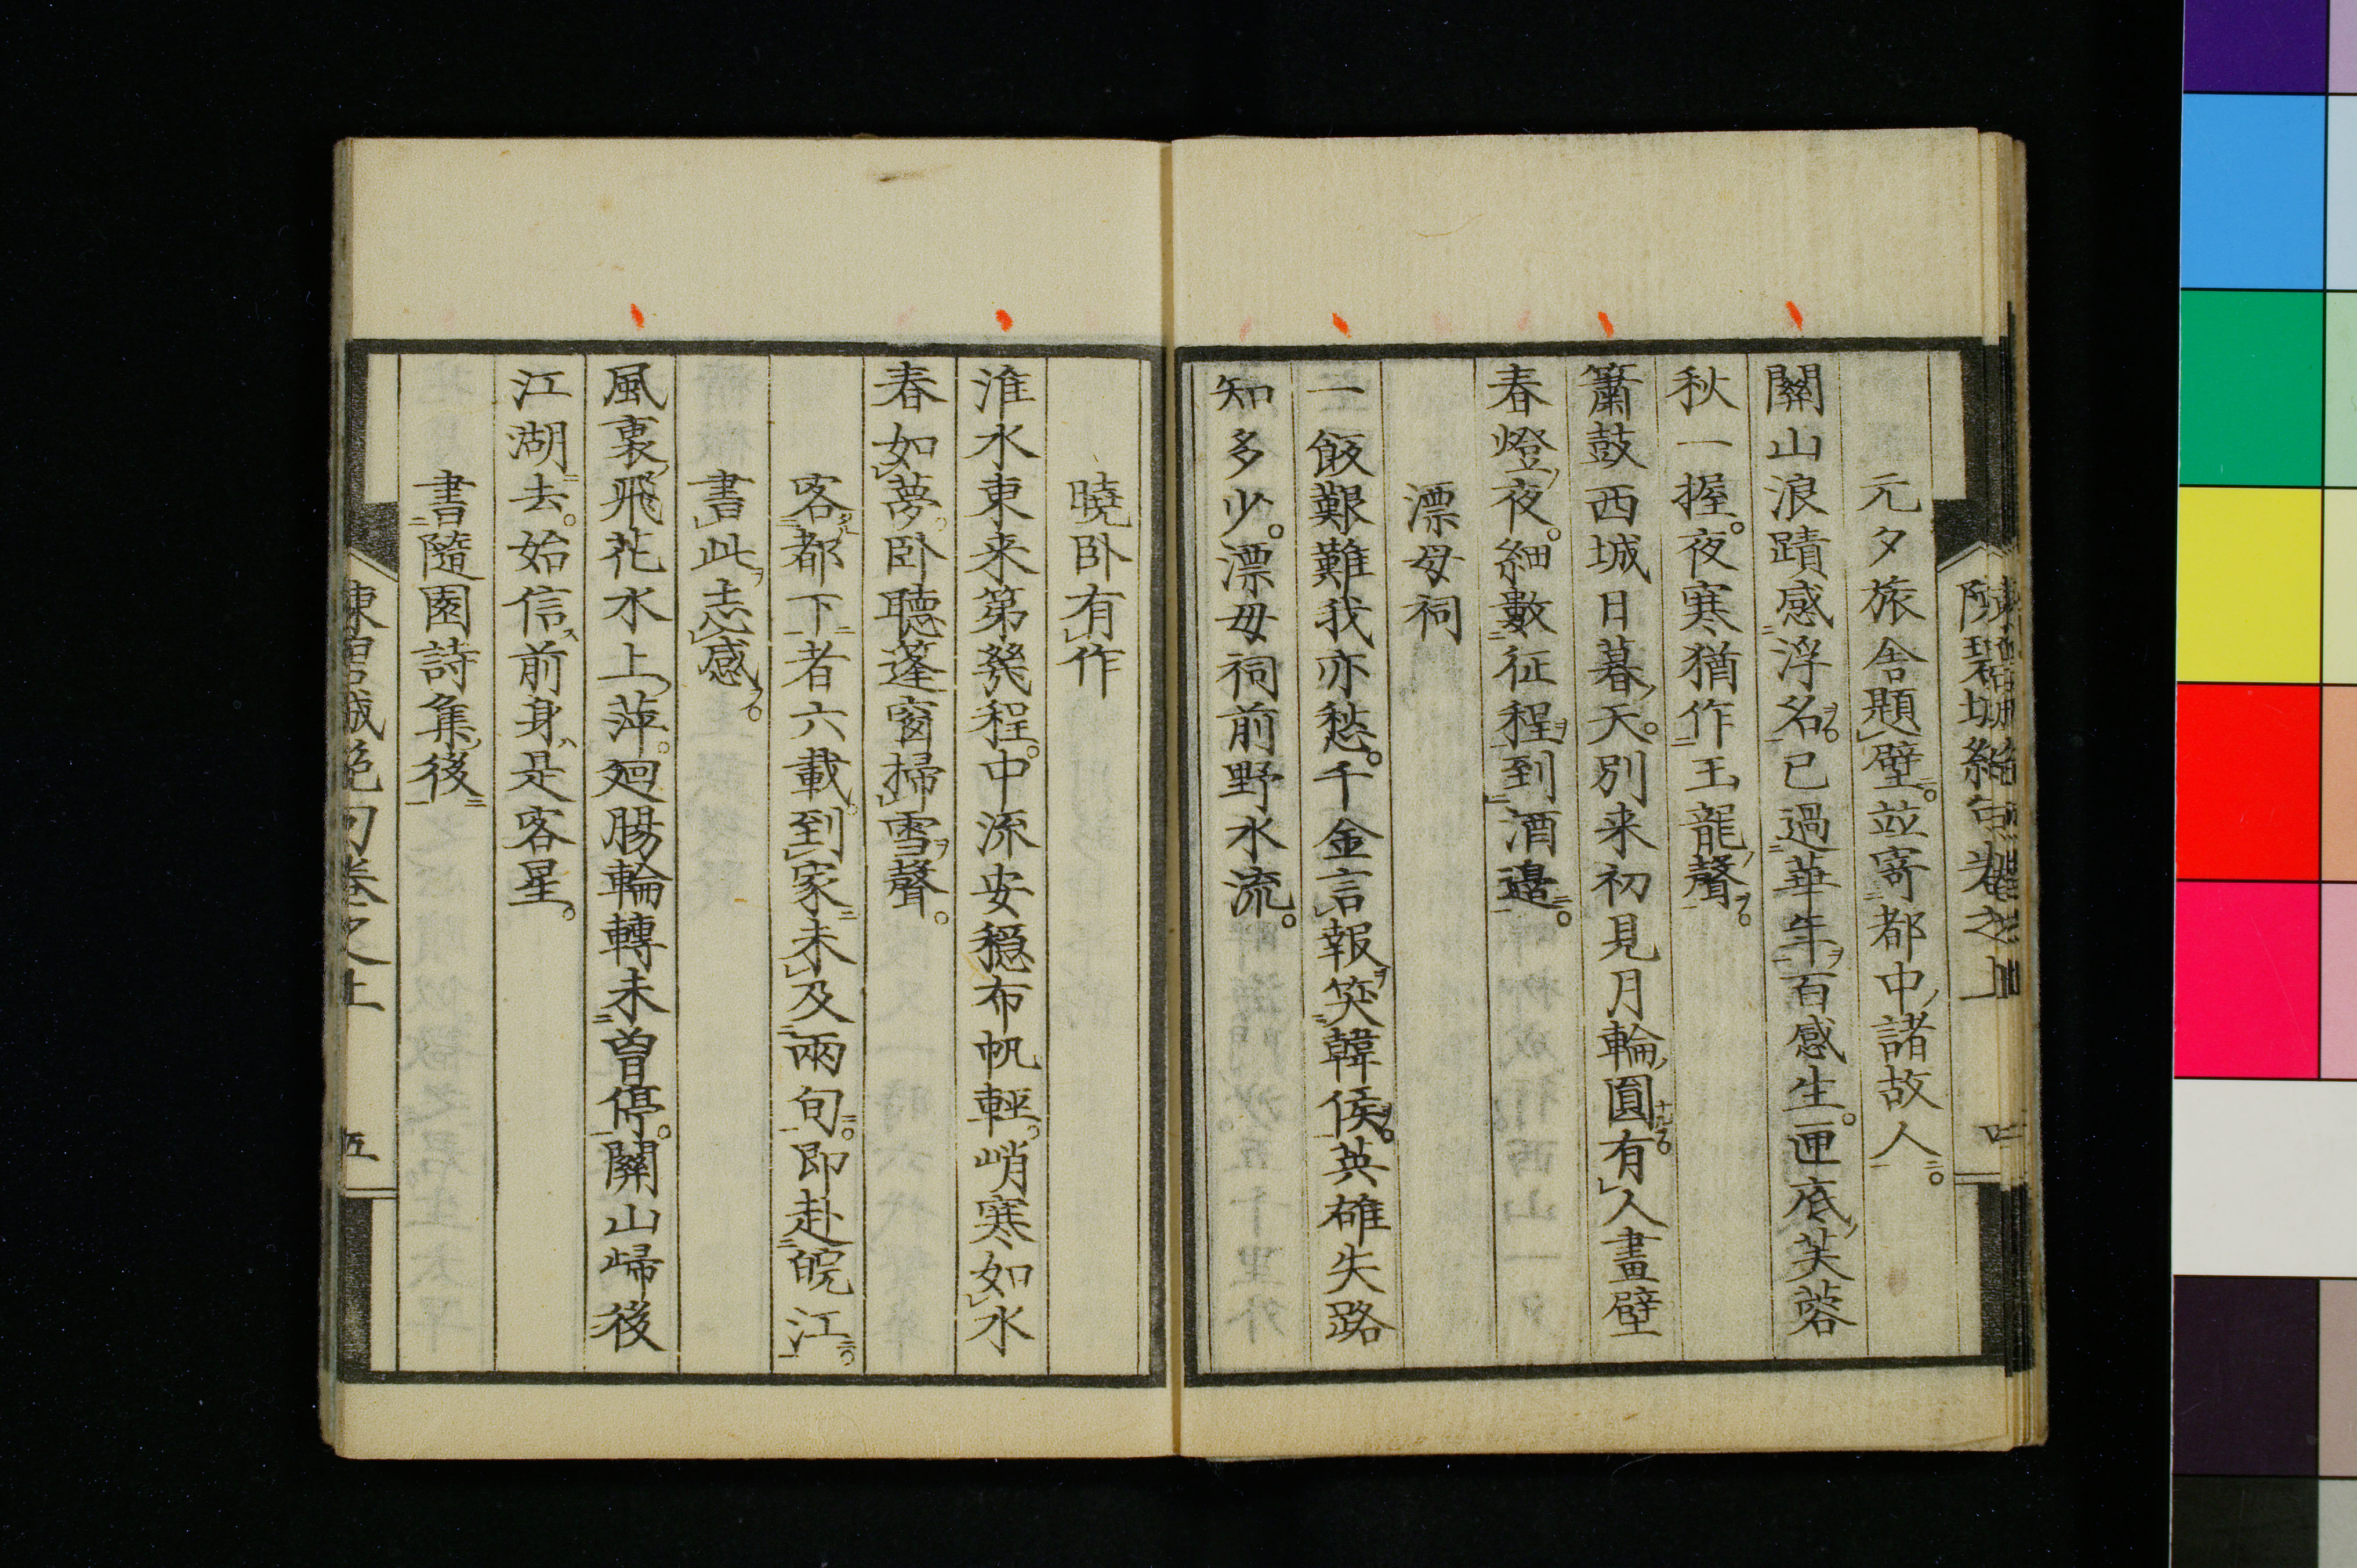 陳碧城絶句卷之上 四
元夕旅舍題壁並寄都中諸故人
關山浪蹟感浮名已過華年百感生匣底芙蓉
秋一握夜寒猶作玉龍聲
簫鼓西城日暮天別来初見月輪圓有人畫壁
春燈夜細數征程到酒邊
漂母祠
一飯艱難我亦愁千金言報笑韓侯英雄失路
知多少漂母祠前野水流
曉卧有作
淮水東来第幾程中流安穏布帆輕峭寒如水
春如夢卧聽蓬窗掃雪聲
客都下者六載到家未及兩旬即赴皖江
書此志感
風裏飛花水上萍廻腸輪轉未曾停關山歸後
江湖去始信前身是客星
書隨園詩集後
陳碧城絶句卷之上 五